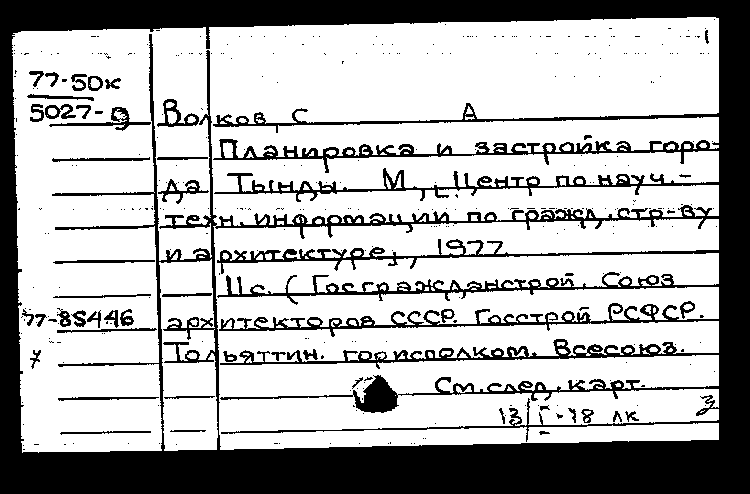 1
77-50к
5027-9
Волков, С А
Планировка и застройка горо-
да Тынды. М., [Центр по науч.-
техн. информации по гражд. стр-ву
и архитектуре], 1977.
11с. (Госгражданстрой. Союз
77-88446 архитекторов СССР. Госстрой РСФСР.
7 Тольяттин. горисполком. Всесоюз.
См. след. карт.
13/I-78 лк 3